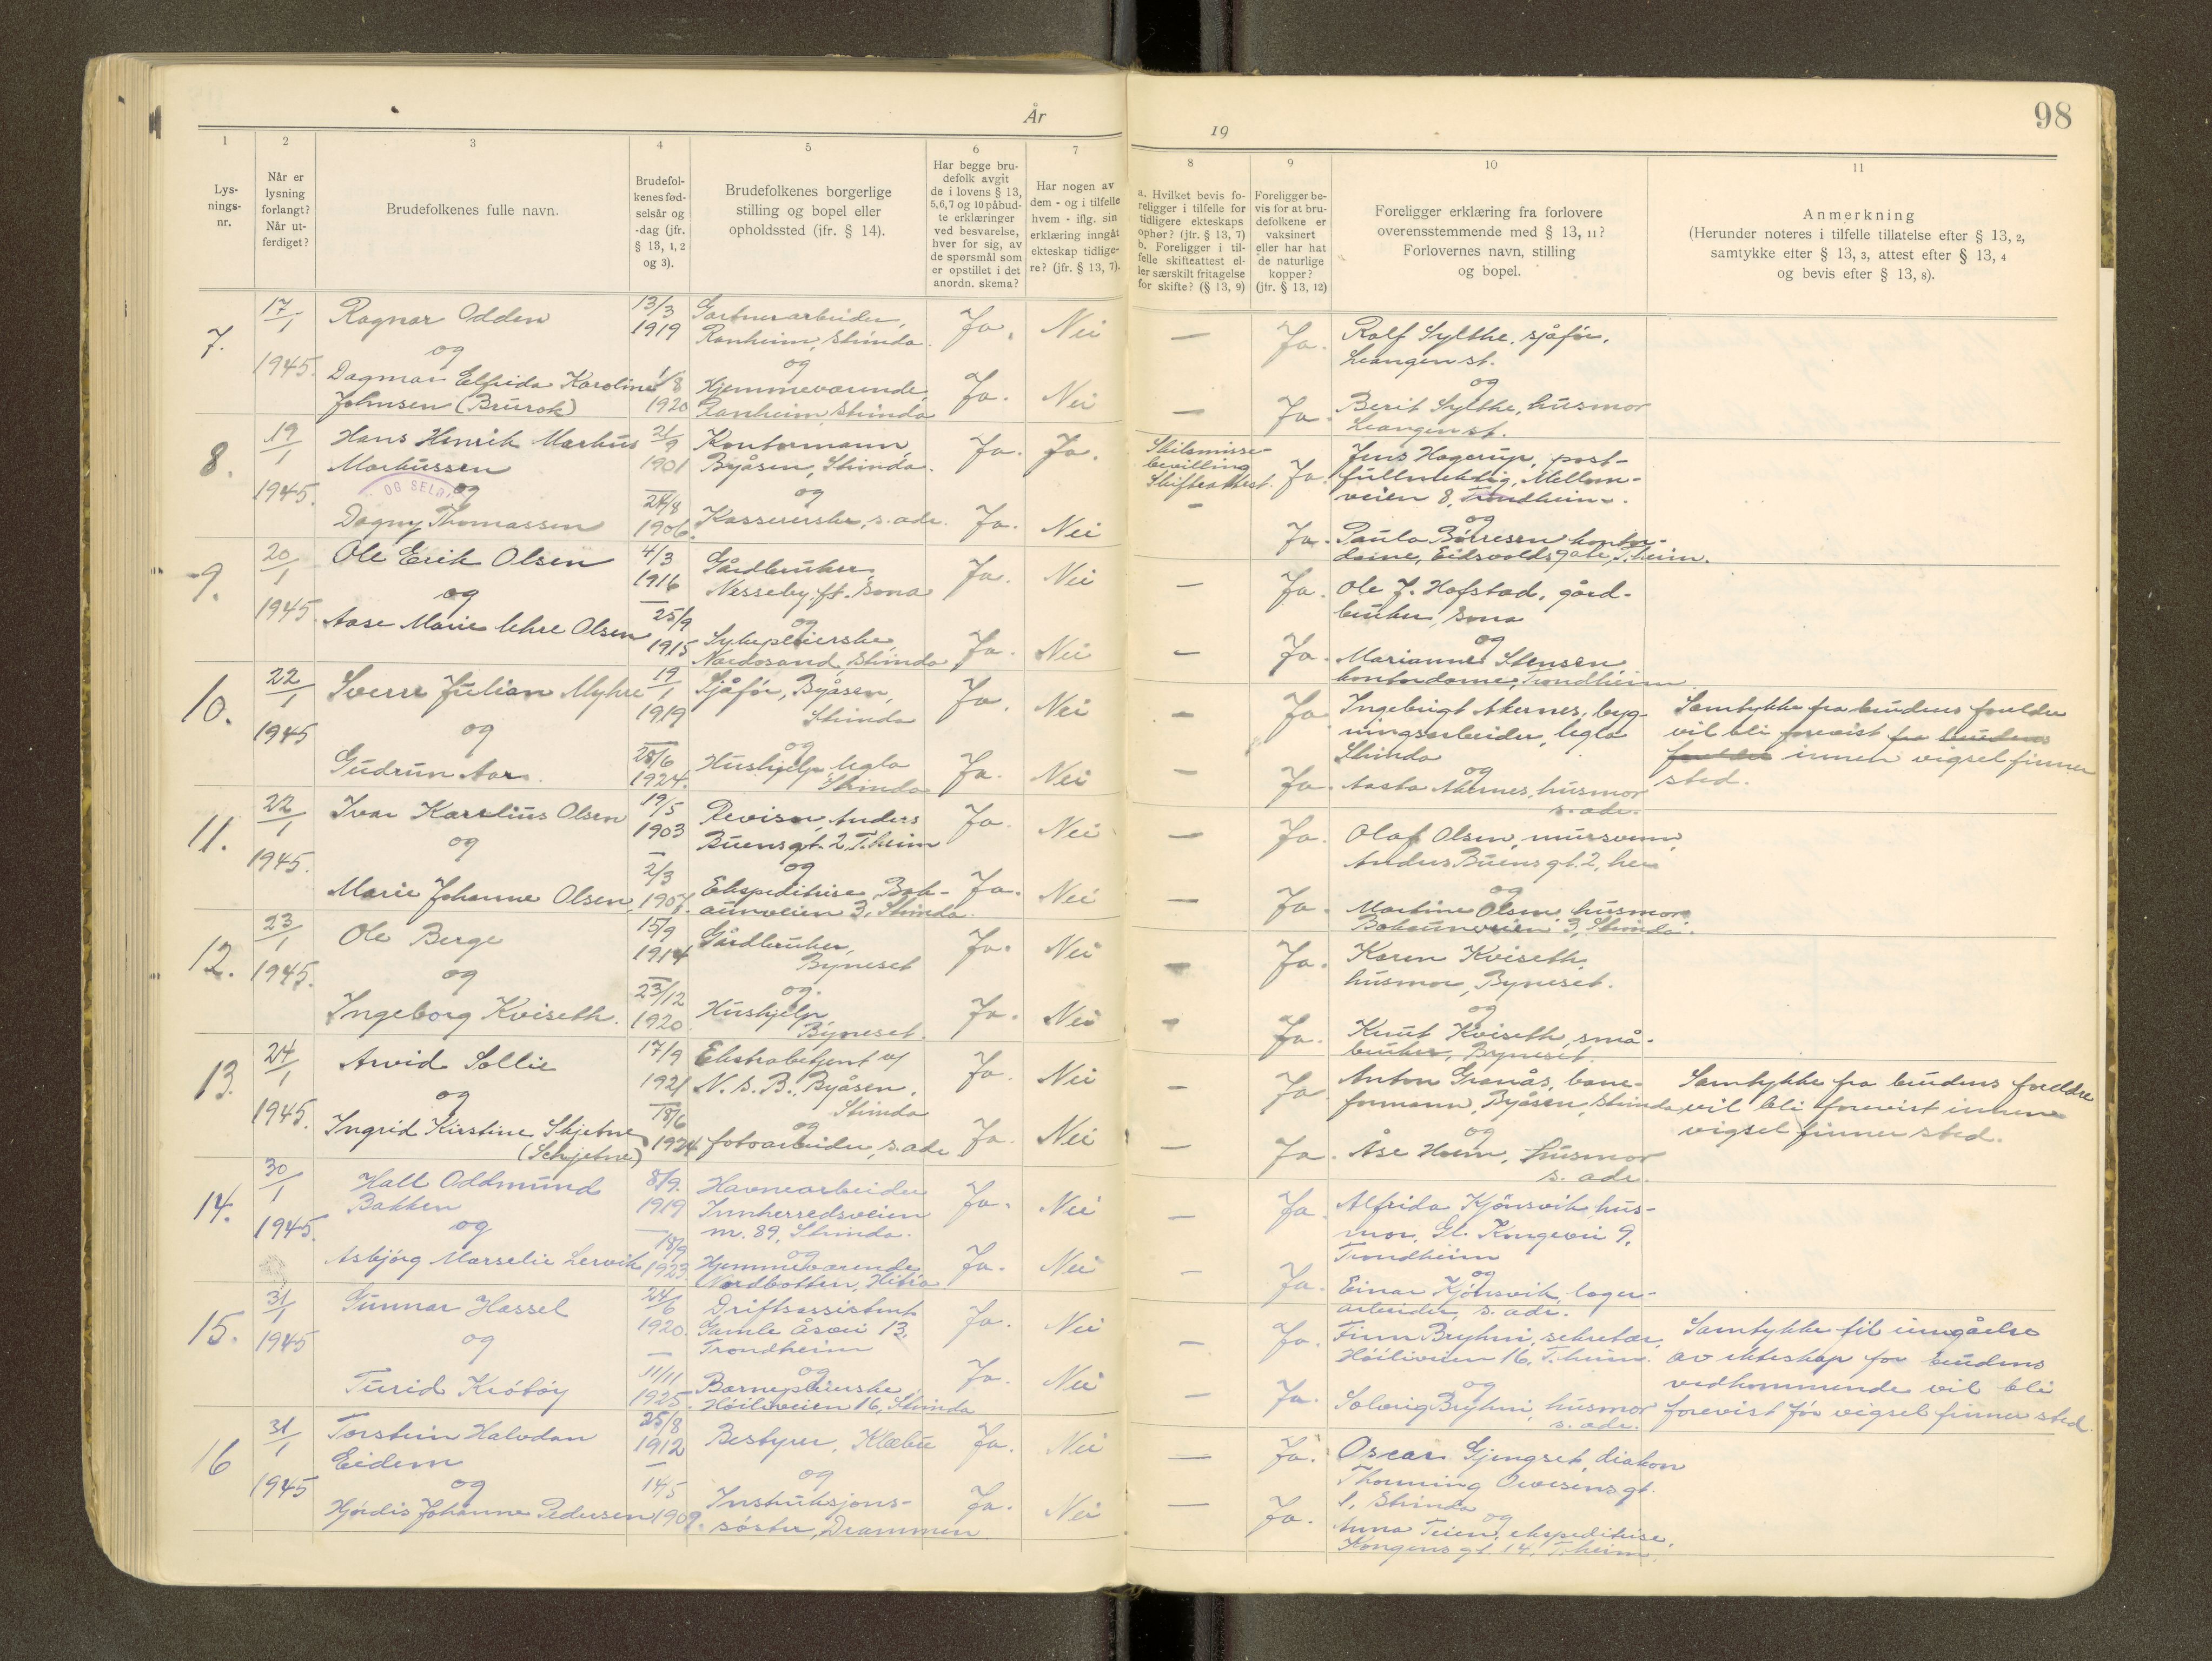 År
19
98
1
2
3
4
5
6
7
8
9
10
11
Lys-
nings-
nr.
Når er
lysning
forlangt?
Når ut-
ferdiget?
Brudefolkenes fulle navn.
Brudefol-
kenes fød-
selsår og
-dag (jfr.
§ 13, 1, 2
og 3).
Brudefolkenes borgerlige
stilling og bopel eller
opholdssted (ifr. § 14).
Har begge bru-
defolk avgit
de i lovens § 13,
5,6,7 og 10 påbud-
te erklæringer
ved besvarelse,
hver for sig, av
de spørsmål som
er opstillet i det
anordn. skema?
Har nogen av
dem - og i tilfelle
hvem - iflg. sin
erklæring inngått
ekteskap tidlige-
re? (jfr. § 13, 7).
a. Hvilket bevis fo-
religger i tilfelle for
tidligere ekteskaps
ophør? (jtr. § 13, 7)
b. Foreligger i til-
felle skifteattest el-
ler særskilt fritagelse
for skifte? (§ 13, 9)
Foreligger be-
vis for at bru-
defolkene er
vaksinert
eller har hat
de naturlige
kopper?
(jtr. § 13, 12)
Foreligger erklæring fra forlovere
overensstemmende med § 13, 11?
Forlovernes navn, stilling
og bopel.
Anmerkning
(Herunder noteres i tilfelle tillatelse efter § 13, 2,
samtykke efter § 13, 3, attest efter § 13, 4
og bevis efter § 13, 8).
7.
17/1
1945.
Ragnar Odden
og
Dagmar Elfrida Karoline
Johnsen (Brurok)
13/3
1919
1/8
1920
Gartnerarbeider,
Ranheim, Strinda.
og
Hjemmeværende,
Ranheim, Strinda
Ja.
Ja.
Nei
Nei
—
—
Ja.
Ja.
Rolf Sylthe, sjåfør,
Leangen st.
og
Berit Sylthe, husmor
Leangen st.
8.
19/1
1945.
Hans Henrik Markus
Markussen
og
Dagny Thomassen
OG SELBU
21/9
1901
24/8
1906.
Kontormann,
Byåsen, Strinda.
og
Kassererske, s. adr.
Ja.
Ja.
Ja.
Nei
Skilsmisse-
bevilling
Skifteattest.
-
Ja.
Ja.
Jens Hagerup, post-
fullmektig, Mellom-
veien 8, Trondheim.
og
Paula Börresen kontor-
dame, Eidsvoldsgate, T.heim.
9.
20/1
1945.
Ole Erik Olsen
og
Aase Marie Uhre Olsen
4/3
1916
25/9
1915
Gårdbruker,
Nesseby. ft. Sona
og
Sykepleierske,
Nardosand, Strinda
Ja.
Ja.
Nei
Nei
—
—
Ja.
Ja.
Ole J. Hofstad, gård-
bruker, Sona
og
Marianne Stensen
kontordame, Trondheim
10.
22/1
1945
Sverre Julian Myhre
og
Gudrun Aar.
19/1
1919
28/6
1924.
Sjåfør, Byåsen,
Strinda
og
Hushjelp, Ugla
Strinda
Ja.
Ja.
Nei
Nei
—
—
Ja
Ja.
Ingebrigt Akernes, byg-
ningsarbeider, Ugla
Strinda
og
Aasta Akernes, husmor
s. adr.
Samtykke fra brudens foreldre
vil bli forevist fra brudens
foreldre innen vigsel finner
sted.
11.
22/1
1945.
Ivar Karelius Olsen
og
Marie Johanne Olsen,
19/5
1903
2/3
1907.
Revisor, Anders
Buensgt. 2, T.heim
og
Ekspeditrise, Bak-
aunveien 3, Strinda.
Ja.
Ja.
Nei
Nei
—
—
Ja.
Ja.
Olaf Olsen, mursvenn,
Anders Buensgt. 2, her
og
Martine Olsen, husmor,
Bakaunveien 3, Strinda.
12.
23/1
1945.
Ole Berge
og
Ingeborg Kviseth.
15/9
1914
23/12
1920
Gårdbruker,
Byneset
og
Hushjelp
Byneset.
Ja.
Ja.
Nei
Nei
—
-
Ja.
Ja.
Karen Kviseth,
husmor, Byneset.
og
Knut Kviseth, små-
bruker, Byneset.
13.
24/1
1945.
Arvid Sollie
og
Ingrid Kirstine Skjetne
(Schjetne)
17/9
1921
18/6
1924
Ekstrabetjent v/
N.S.B., Byåsen,
Strinda
og
fotoarbeider, s. adr
Ja.
Ja.
Nei
Nei
—
—
Ja.
Ja.
Anton Granås, bane-
formann, Byåsen, Strinda
og
Åse Hem, husmor
s. adr.
Samtykke fra brudens foreldre
vil bli forevist innen
vigsel finner sted.
14.
30/1
1945.
Hall Oddmund
Bakken
og
Asbjörg Marselie Lervik
8/9.
1919
18/9
1923
Havnearbeider
Innherredsveien
m. 89, Strinda.
og
Hjemmeværende
Nordbotten, Hitra.
Ja.
Ja.
Nei
Nei
—
—
Ja.
Ja.
Alfrida Kjönsvik, hus-
mor, Gl. Kongevei 9,
Trondheim
og
Einar Kjönsvik, lager-
arbeider, s. adr.
15.
31/1
1945
Gunnar Hassel
og
Turid Krötöy
24/6
1920.
11/11
1925.
Driftsassistent
Gamle Åsvei 13,
Trondheim
og
Barnepleierske,
Höiliveien 16, Strinda
Ja.
Ja.
Nei
Nei
—
—
Ja.
Ja.
Finn Bryhni, sekretær,
Höiliveien 16, T.heim.
og
Solveig Bryhni, husmor
s. adr.
Samtykke til inngåelse
av ekteskap for brudens
vedkommende vil bli
forevist før vigsel finner sted.
16
31/1
1945
Torstein Halvdan
Eidem
og
Hjördis Johanne Pedersen
25/8
1912
14/5
1909.
Bestyrer, Klæbu
og
Instruksjons-
söster, Drammen
Ja.
Ja.
Nei
Nei
—
—
Ja.
Ja.
Oscar Gjengset, diakon
Thonning Owesensgt.
1, Strinda
og
Anna Teien, ekspeditrise,
Kongensgt. 14, T.heim.